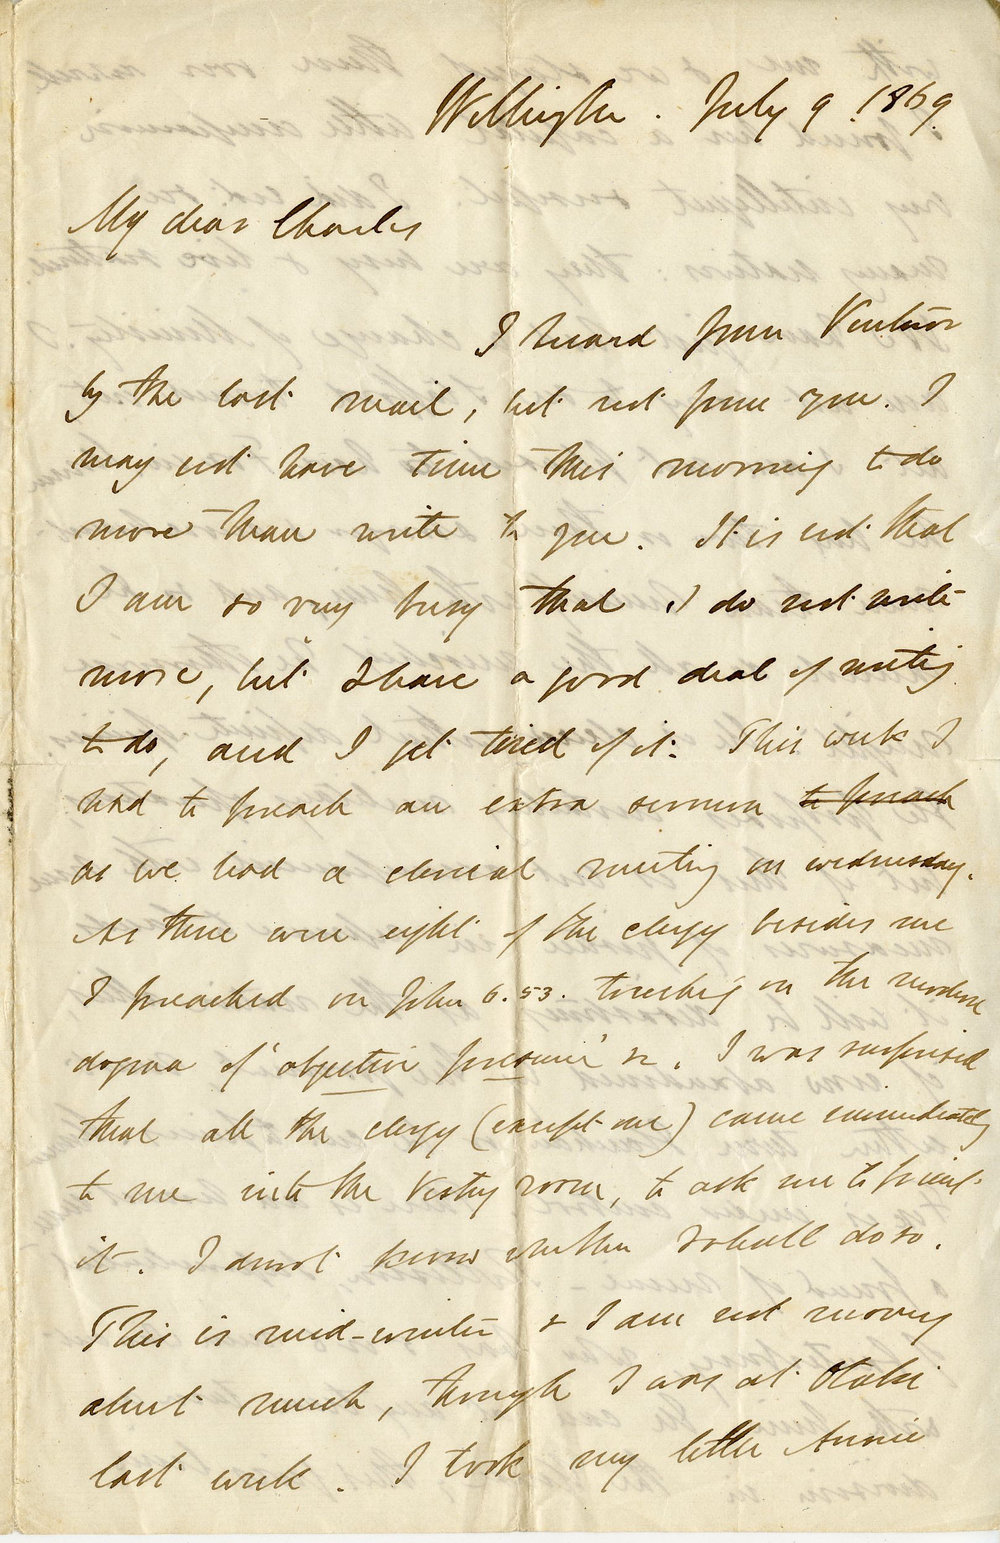 Wellington. July 9. 1869.
My dear Charles
I heard from Ventnor
by the last mail, but not from you. I
may not have time this morning to do
more than write to you. It is not that
I am so very busy that I do not write
more, but I have a good deal of writing
to do, and I get tired of it. This week I
had to preach an extra sermon to preach
as we had a clerical meeting on Wednesday.
As there were eight of the clergy besides me
I preached on John 6. 53. touching on the modern
dogma of 'objective presence' &c. I was surprised
that all the clergy (except one) came immediately
to me into the Vestry room, to ask me to print
it. I do not know whether I shall do so.
This is mid-winter & I am not moving
about much, though I was at Otaki
last week. I took my little Annie